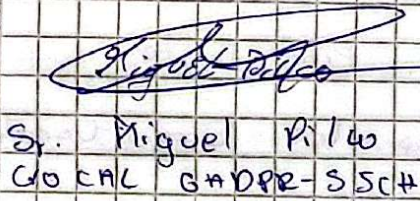 Miguel Pilco
Sr. Miguel Pilco
VOCAL GADPR-SSCH